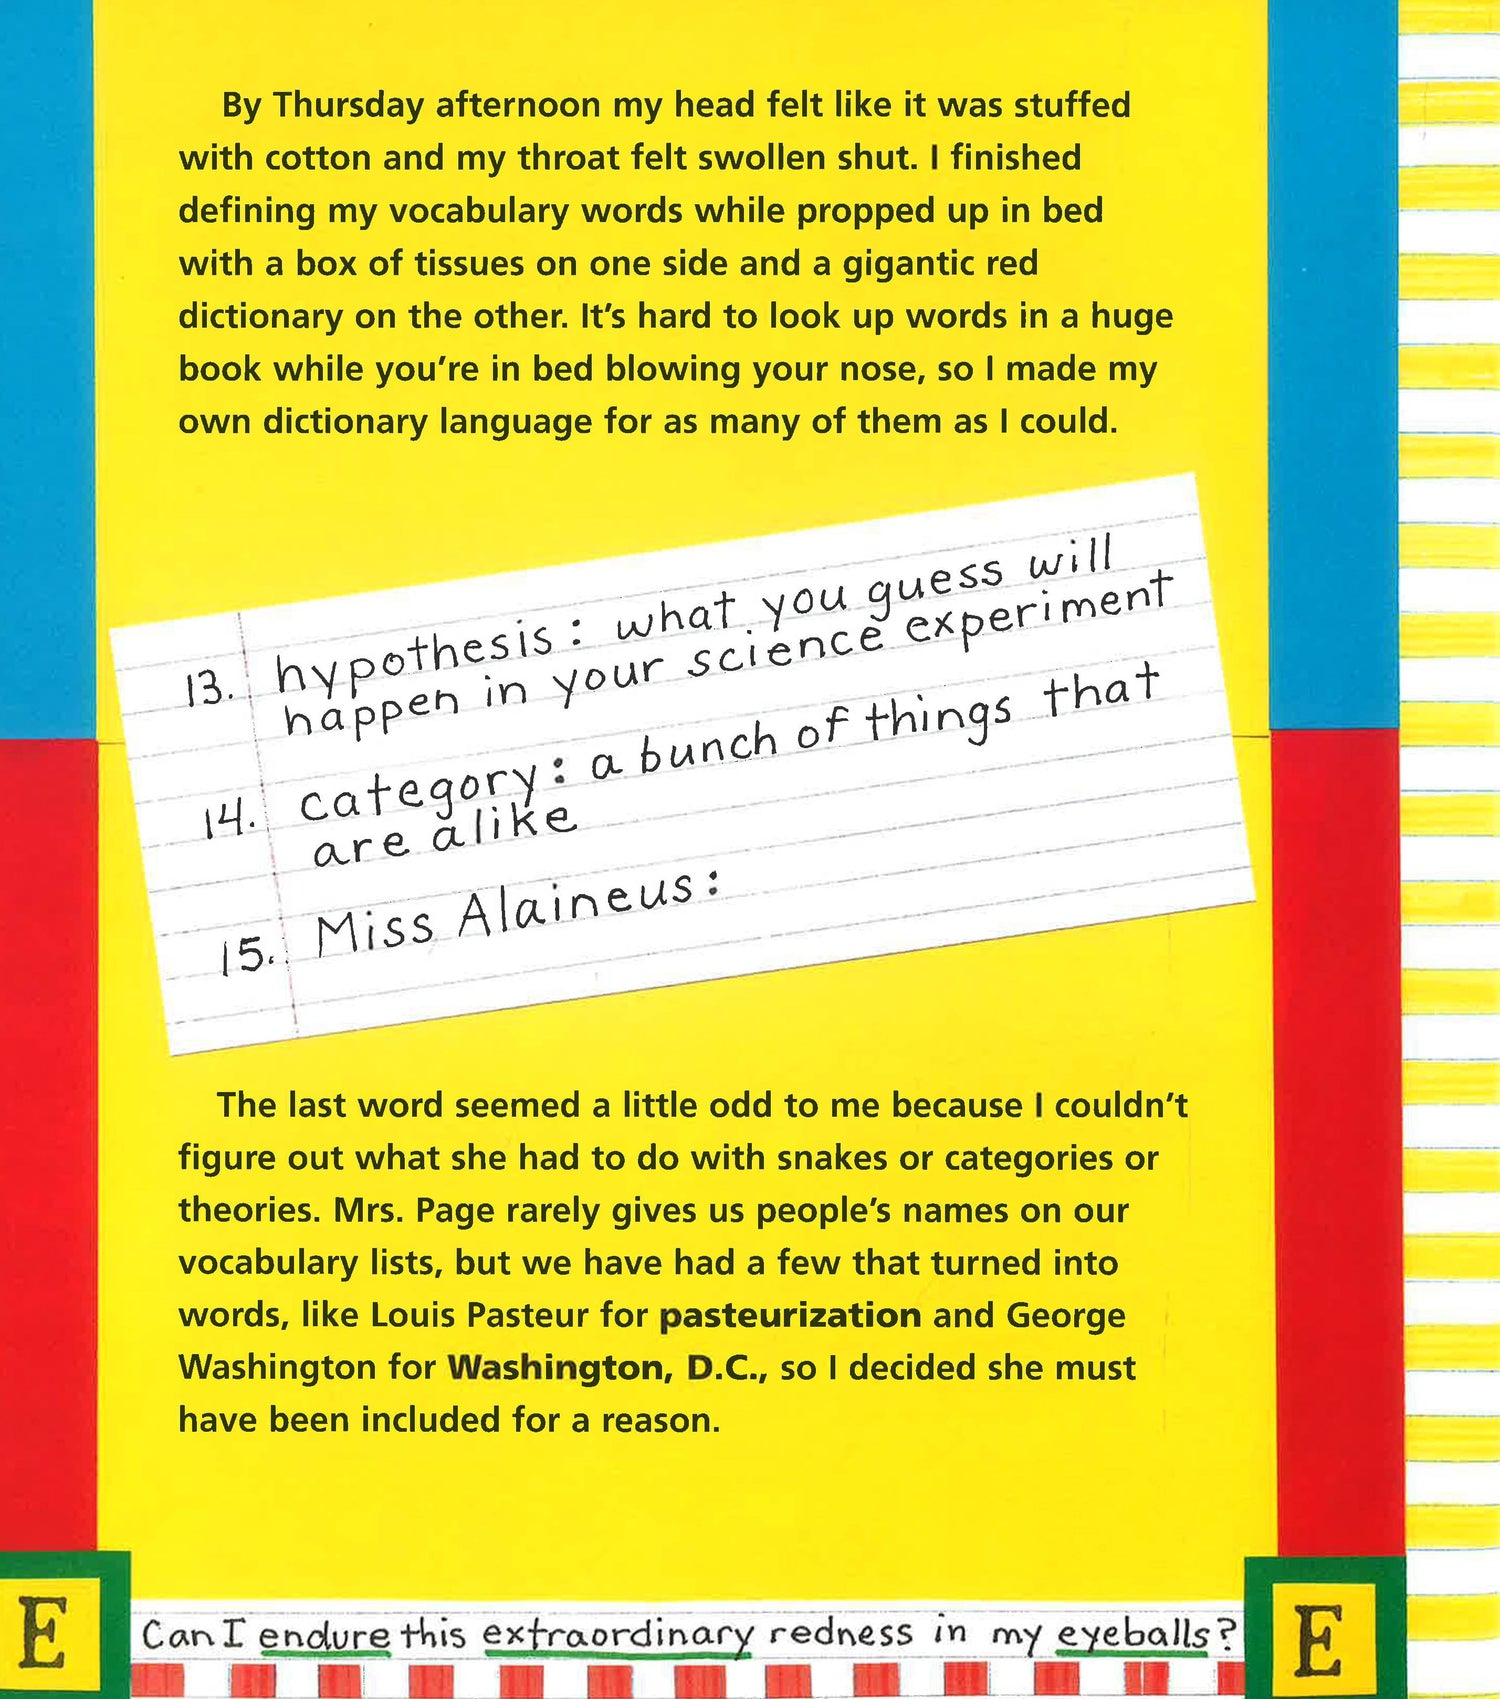 By Thursday afternoon my head felt like it was stuffed
with cotton and my throat felt swollen shut. I finished
defining my vocabulary words while propped up in bed
with a box of tissues on one side and a gigantic red
dictionary on the other. It's hard to look up words in a huge
book while you're in bed blowing your nose, so I made my
own dictionary language for as many of them as I could.
13. hypothesis: what you guess will
happen in your science experiment
14. category: a bunch of things that
are alike
15. Miss Alaineus:
The last word seemed a little odd to me because I couldn't
figure out what she had to do with snakes or categories or
theories. Mrs. Page rarely gives us people's names on our
vocabulary lists, but we have had a few that turned into
words, like Louis Pasteur for pasteurization and George
Washington for Washington, D.C., so I decided she must
have been included for a reason.
E Can I endure this extraordinary redness in my eyeballs? E